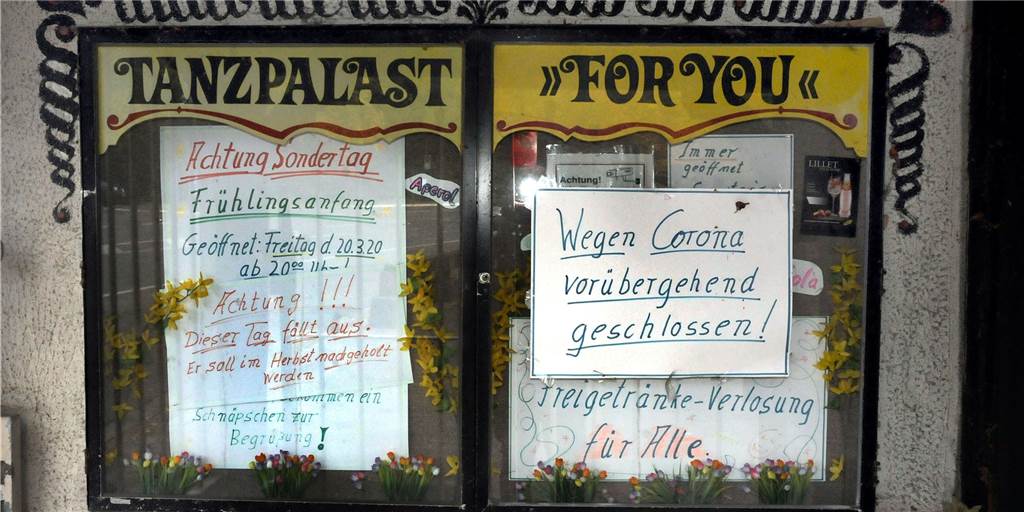 TANZPALAST
Achtung Sondertag
Frühlingsanfang
Geöffnet: Freitag d. 20.3.20
ab 20⁰⁰ Uhr!
Achtung!!!
Dieser Tag fällt aus.
Er soll im Herbst nachgeholt
werden
ein
Schnäpschen zur
Begrüßung!
Aperol
»FOR YOU«
Achtung!
Immer
geöffnet
LILLET
Wegen Corona
vorübergehend
geschlossen!
Freigetränke-Verlosung
für Alle.